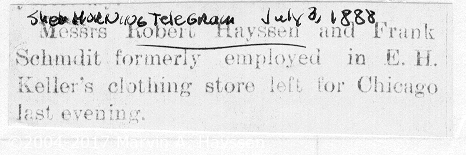 Sheb MORNING TELEGRAM July 3, 1888
Messrs Robert Hayssen and Frank
Schmdit formerly employed in E. H.
Keller's clothing store left for Chicago
last evening.